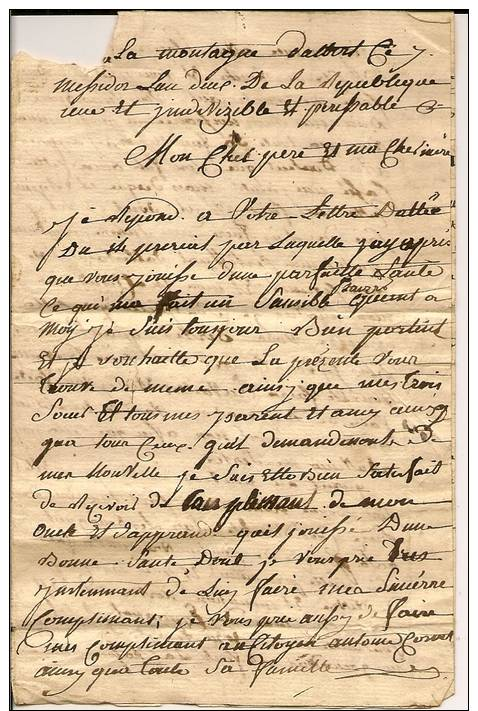 La montagne dalbort Ce 7
Messidor Lan deux De La Republique
une Et yndivizible Et perissable
Mon Cher pere Et ma Cher mere
je Repond a Votre Lettre Dattée
Du 4 presént par Laquelle jay apri
que vous jouisse dune parfaitte Santé
Ce qui ma fait un Sansible quant a
moy je Suis toujour Bien portent
Et je vouhaitte que La présente vous
trouve de meme ainsy que mes trois
Soeur Et tous mes parent et amy ainsy
qua tous Ceux quit demanderont de
mes Nouvelle je Suis Etté Bien Satisfait
de Resevoir de Compliment de mon
Oncle Et d'apprendre quit jouissé Dune
Bonne Santé Dont je vous prie
De Luy faire mes Sincerre
Compliment; je vous prie aussy de faire
mes compliment au Citoyen antoine
ainsy qua toute Sa famille